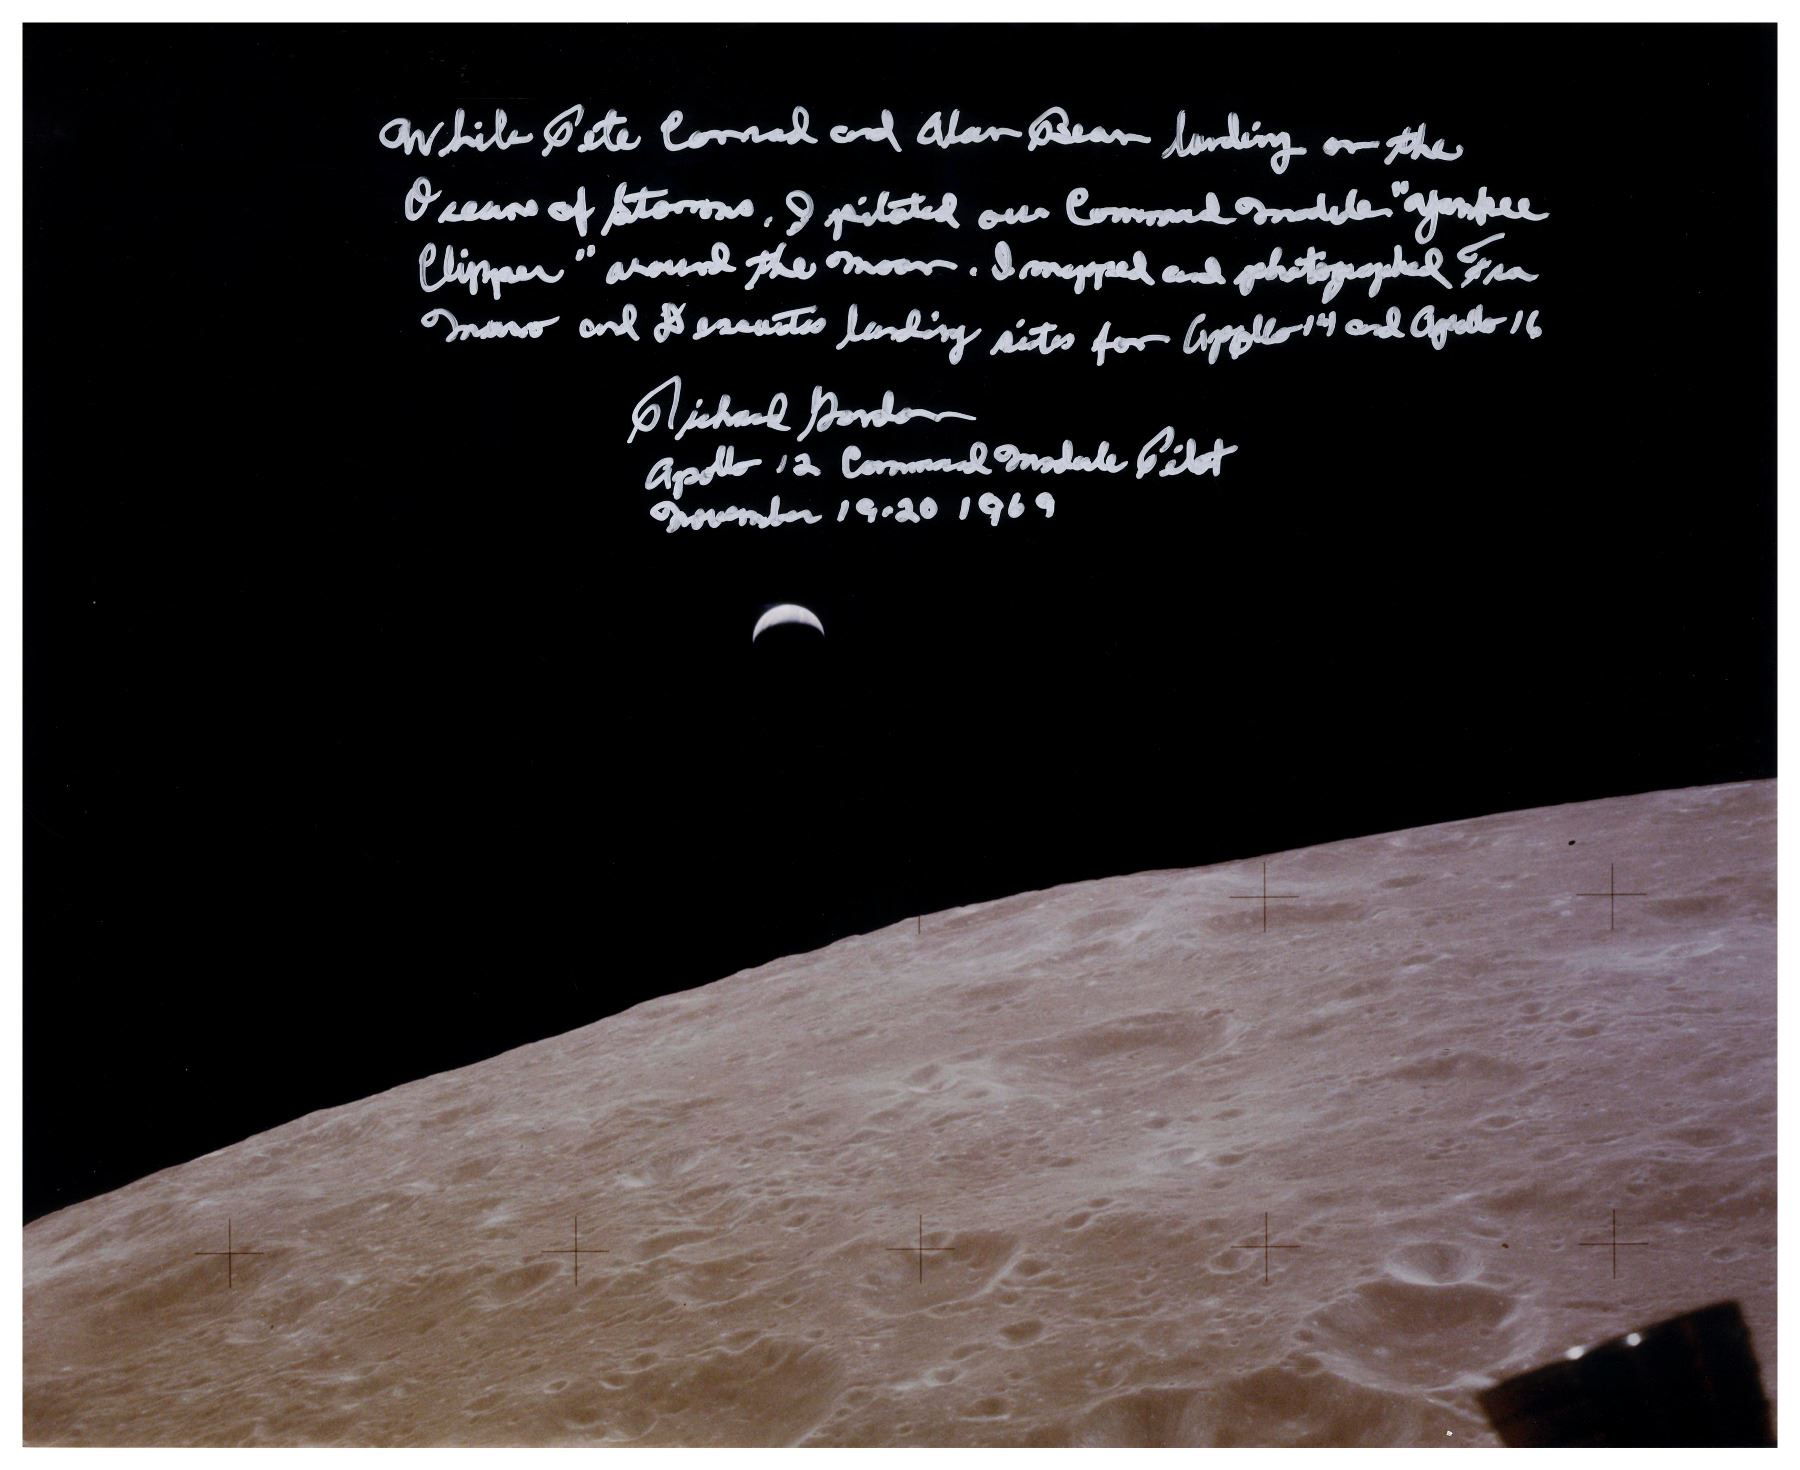 While Pete Conrad and Alan Bean landing on the
Oceans of Storms, I piloted our Command Module "Yankee
Clipper" around the moon. I mapped and photographed Fra
Mauro and Descartes landing sites for Apollo 14 and Apollo 16
Richard Gordon
Apollo 12 Command Module Pilot
November 19-20 1969